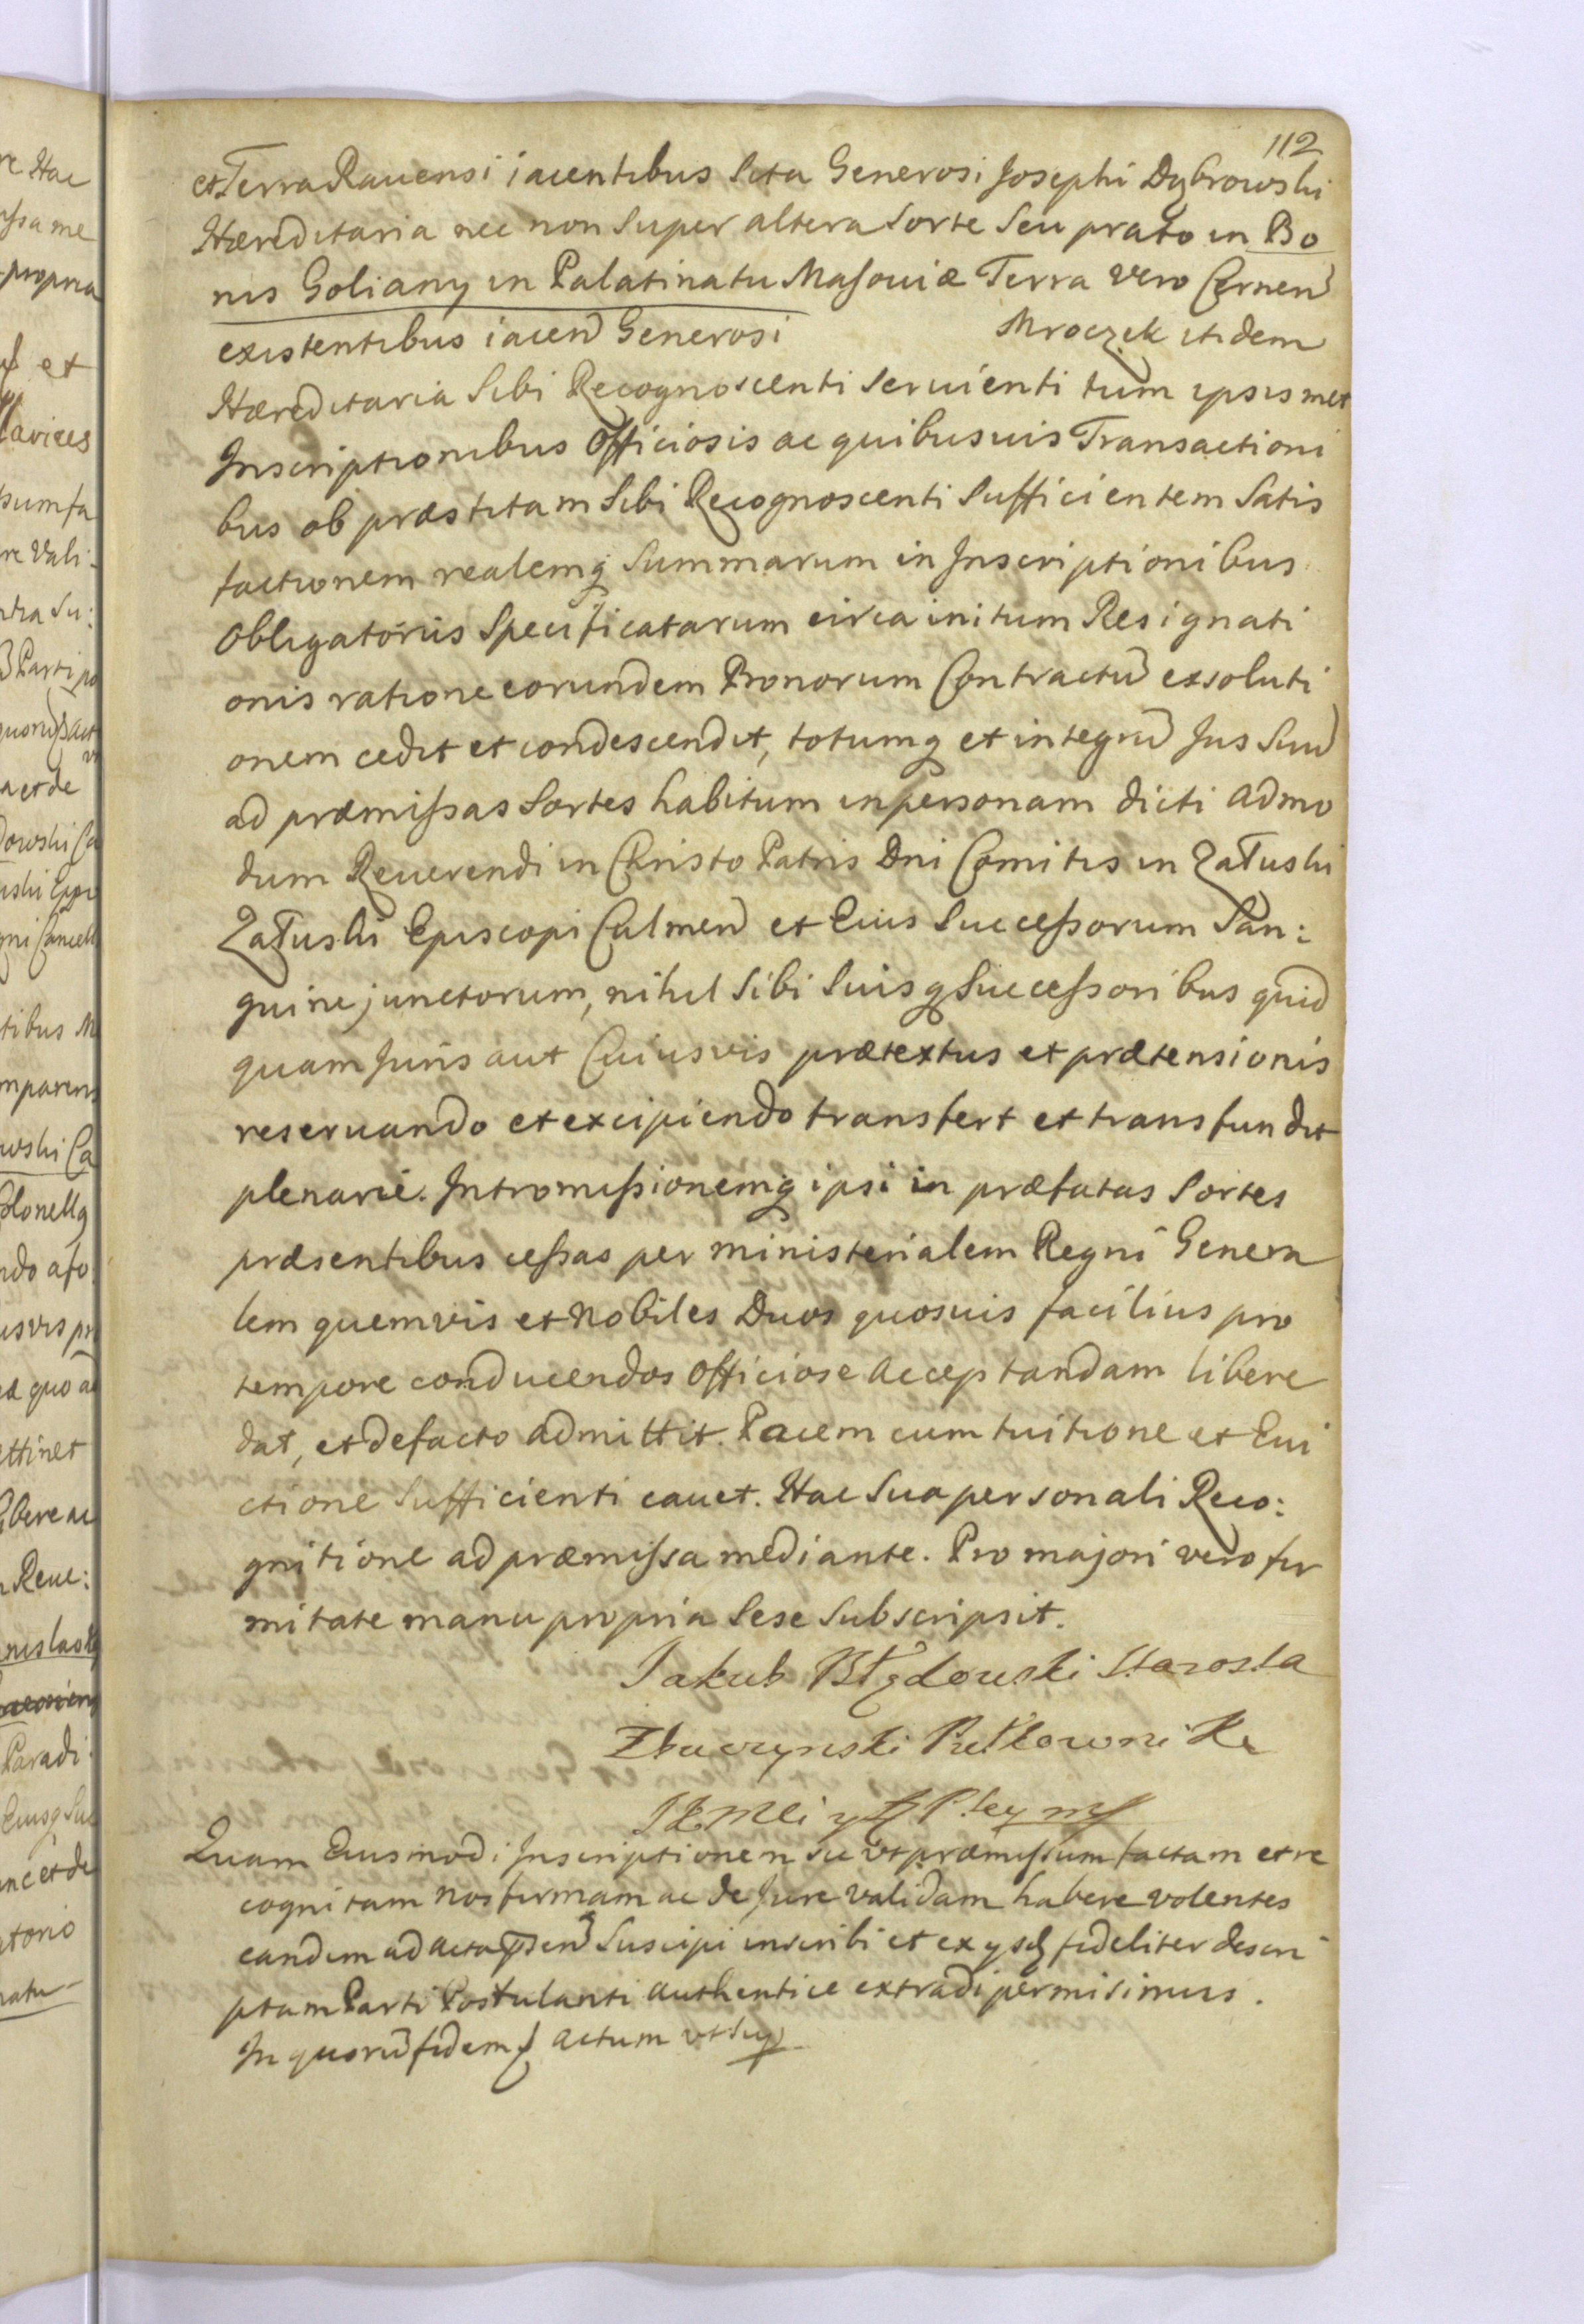 112
et Terra Rauensi iacentibus sita Generosi Josephi Dąbrowski
Hæreditaria nec non super altera sorte seu prato in Bo
nis Goliany in Palatinatu Masouiæ Terra vero Cernen
existentibus iacen Generosi Mroczek itidem
Hæreditaria sibi Recognoscenti seruienti tum ipsismet
Inscriptionibus Officiosis ac quibusuis Transactioni
bus ob præstitam sibi Recognoscenti sufficientem satis
factionem realemq summarum in Inscriptionibus
Obligatoriis specificatarum circa initum Resignati
onis ratione eorundem Bonorum Contractu exsoluti
onem cedit et condescendit, totumq et integru Jus suu
ad præmissas sortes habitum in personam dicti admo
dum Reuerendi in Christo Patris Dni Comitis in Załuski
Załuski Episcopi Culmen et Eius successorum san:
guine junctorum, nihil sibi suisq successoribus quid
quam Juris aut Cuiusvis prætextus et prætensionis
reseruando et excipiendo transfert et transfundit
plenarie. Intromissionemq ipsi in præfatas sortes
præsentibus cessas per ministerialem Regni Genera
lem quemvis et Nobiles Duos quosuis facilius pro
tempore conducendos Officiose acceptandam libere
dat, et de facto admittit. Pacem cum tuitione et Eui
ctione sufficienti cauet. Hac sua personali Reco:
gnitione ad præmissa mediante. Pro majori vero fir
mitate manu propria sese subscripsit.
Jakub Błędowski Starosta
Pułkownik
Quam Eiusmodi Inscriptionem sic vt præmissum factam et re
cognitam nos firmam ac de Jure validam habere volentes
eandem ad acta psen suscipi inscribi et ex ysd fideliter descri
ptam Parti Postulanti authentice extradi permisimus.
In quoru fidem actum vt sup